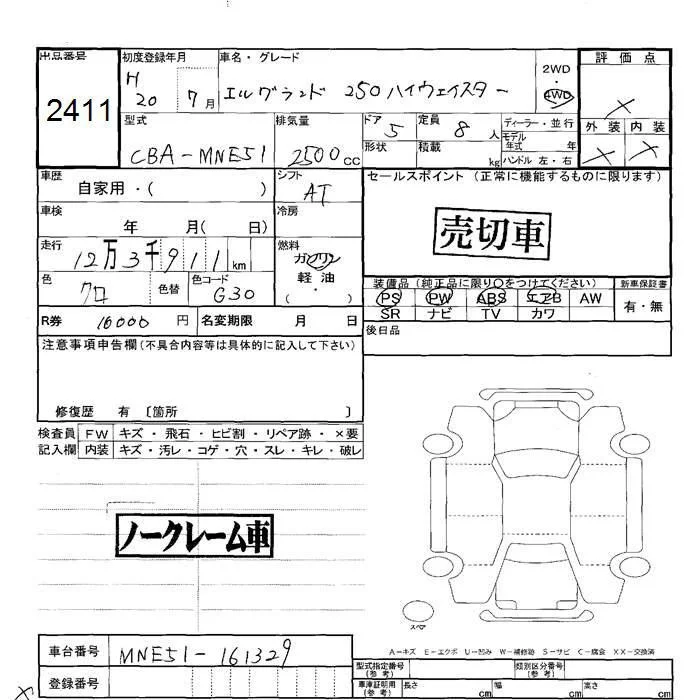 出品番号 初度登録年月 車名・グレード 2WD 評価点
2411 H 20 7月 エルグランド 250 ハイウェイスター 4WD ×
型式 排気量 ドア 定員 ディーラー・並行 外装 内装
CBA-MNE51 2500cc 5 8人 モデル年式 年 × ×
形状 積載 kg ハンドル 左・右
車歴 シフト セールスポイント (正常に機能するものに限ります)
自家用・( ) AT
車検 冷房
年 月( 日) 売切車
走行 燃料
12万3千911km ガソリン
色 色替 色コード 軽油
クロ G30 ・( )
装備品 (純正品に限り○をつけてください) 新車保証書
PS PW ABS エアB AW 有・無
SR ナビ TV カワ
R券 10000円 名変期限 月 日
後日品
注意事項申告欄(不具合内容等は具体的に記入して下さい)
修復歴 有 〔箇所 〕
検査員 FW キズ・飛石・ヒビ割・リペア跡・×要
記入欄 内装 キズ・汚レ・コゲ・穴・スレ・キレ・破レ
ノークレーム車
スペア
A-キズ E-エクボ U-凹み W-補修跡 S-サビ C-腐食 XX-交換済
車台番号 MNE51-161329
登録番号
型式指定番号(参考) 類別区分番号(参考)
車庫証明用(参考) 長さ cm 幅 cm 高さ cm
×